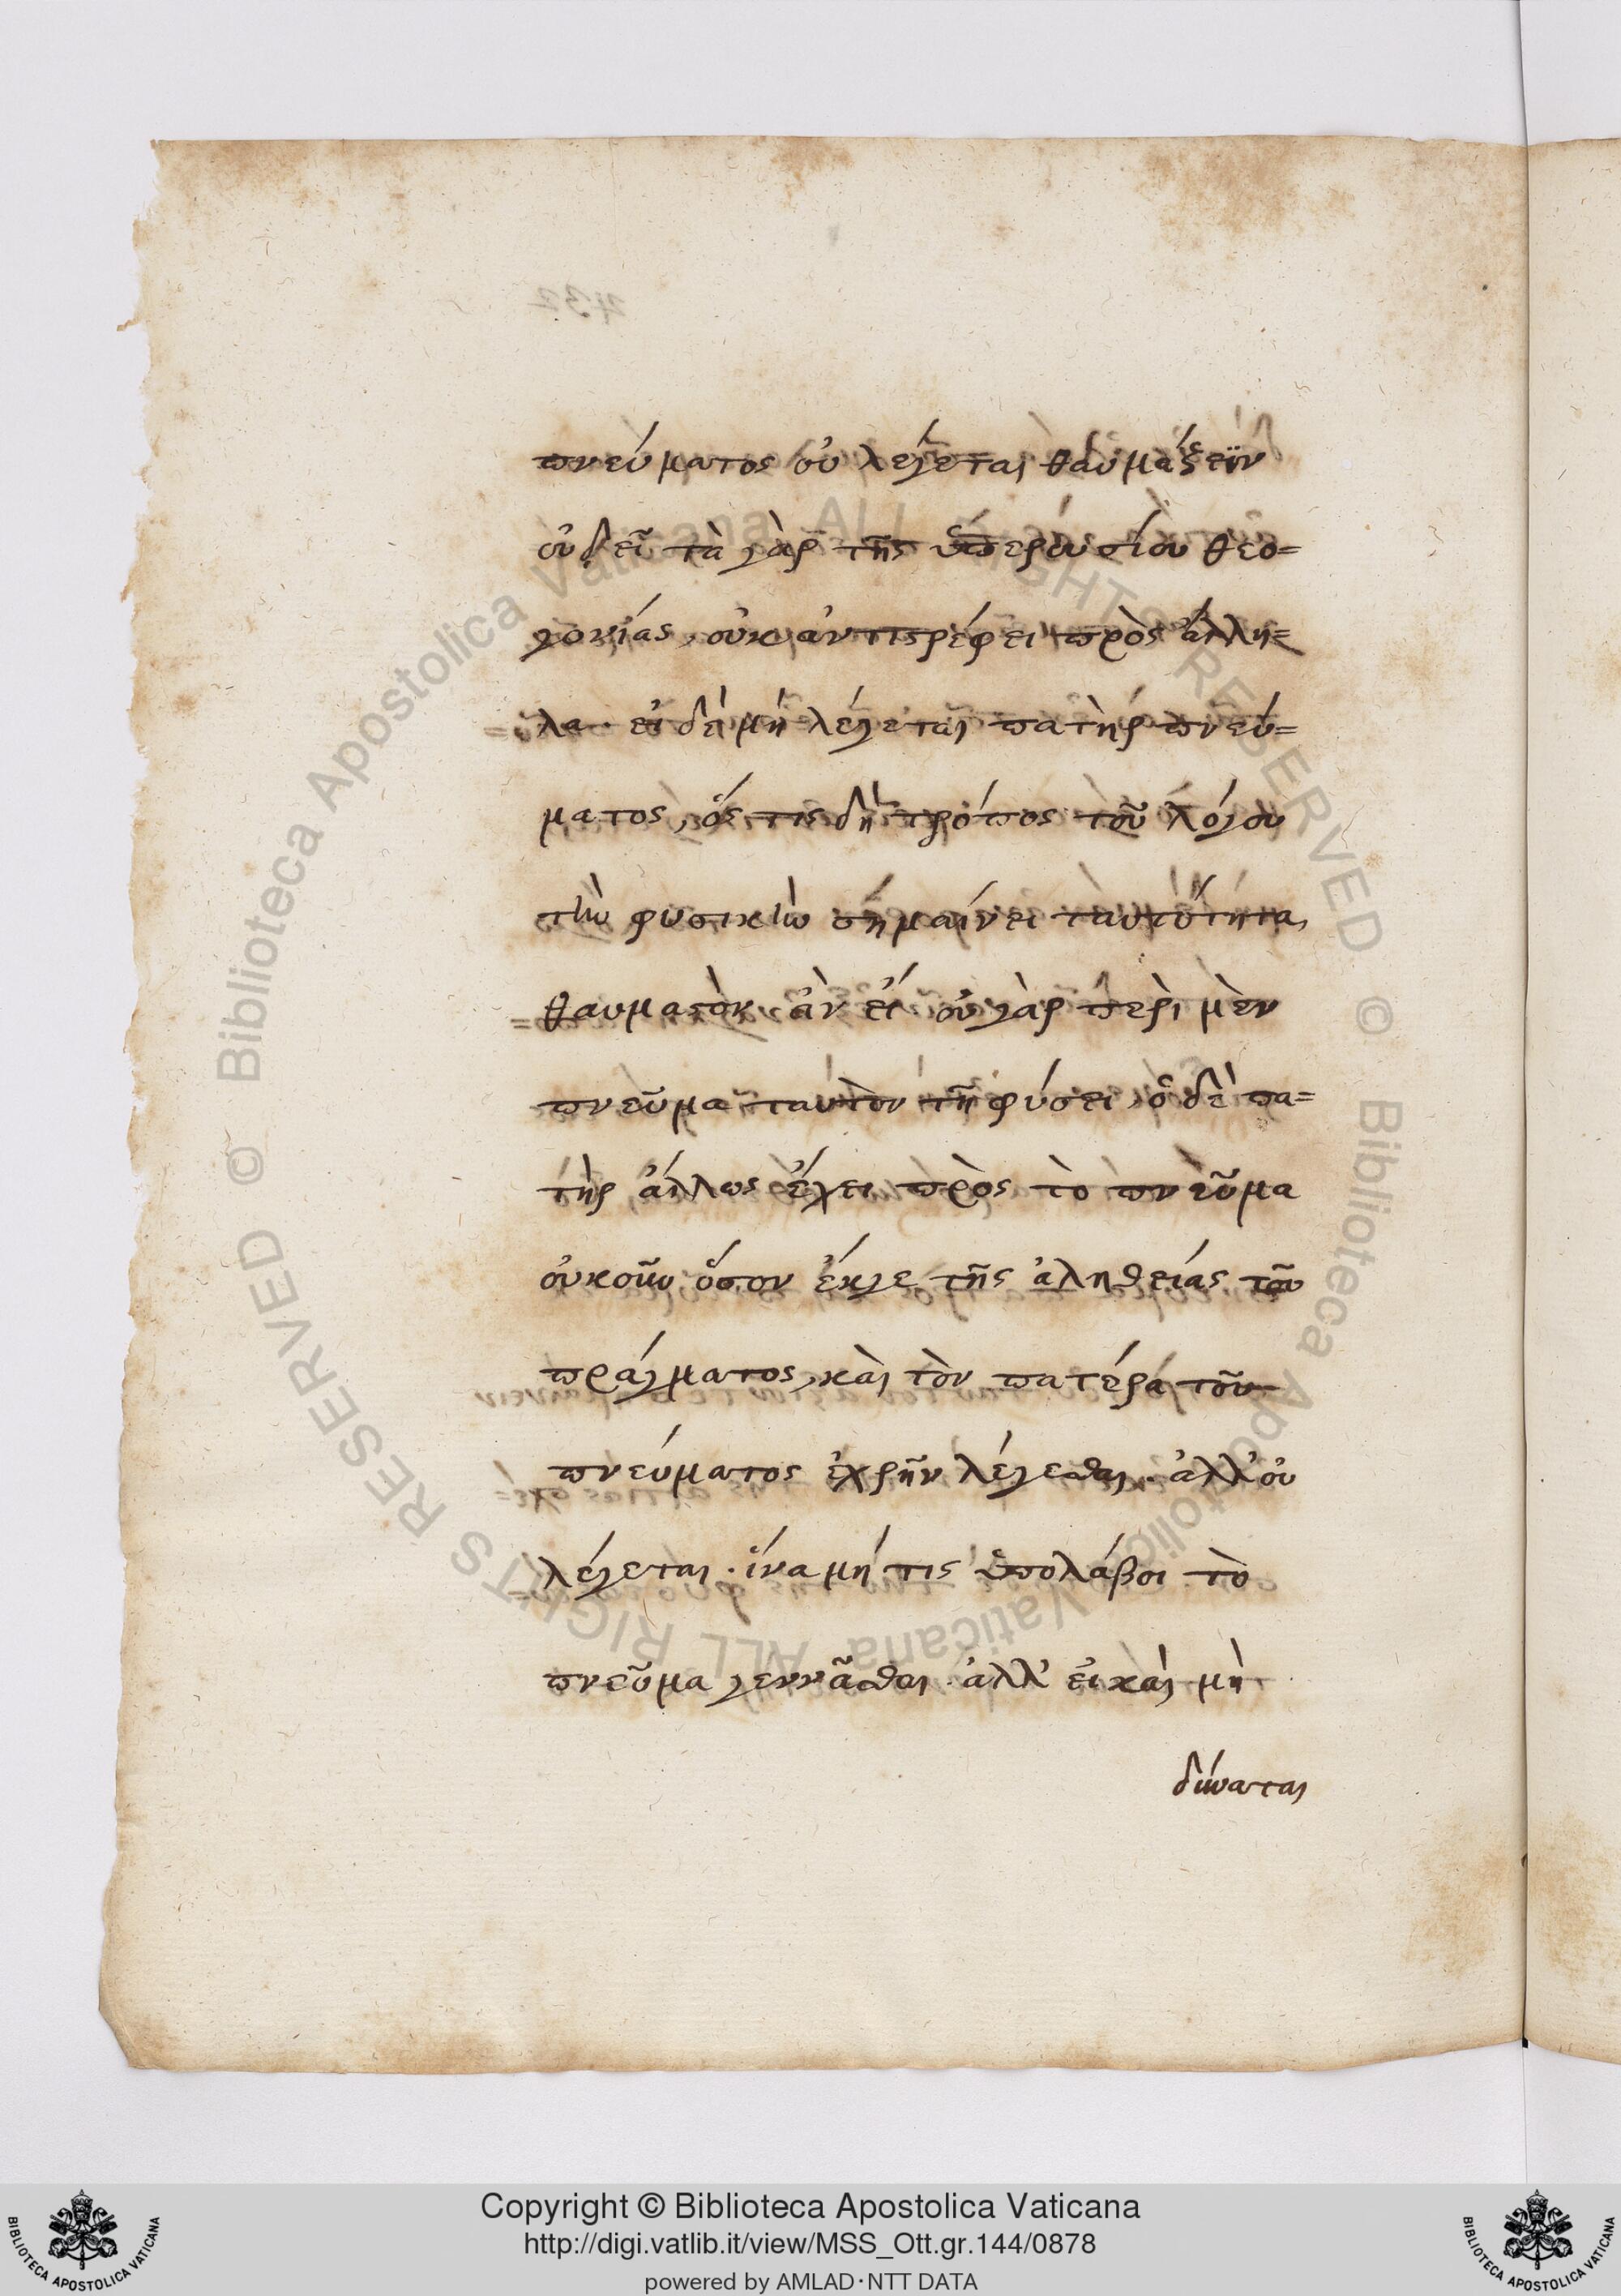 πνεύματος οὐ λέγεται θαυμάζειν
οὐ δεῖ τὰ γὰρ τῆς ὑπερουσίου θεο=
γονίας, οὐκ ἀντιστρέφει πρὸς ἄλλη=
λα· εἰ δὲ μὴ λέγεται πατὴρ πνεύ=
ματος, ὅς τις δὴ τρόπος τοῦ λόγου
τὴν φυσικὴν σημαίνει ταυτότητα,
θαυμαστὸν ἂν εἴ οὐ γὰρ περὶ μὲν
πνεῦμα ταυτὸν τῇ φύσει, ὁ δὲ πα=
τὴρ ἄλλως ἔχει πρὸς τὸ πνεῦμα
οὐκοῦν ὅσον ἕκγε τῆς ἀληθείας τοῦ
πράγματος, καὶ τὸν πατέρα τοῦ
πνεύματος ἐχρῆν λέγεσθαι· ἀλλ' οὐ
λέγεται· ἵνα μή τις ὑπολάβοι τὸ
πνεῦμα γεννᾶσθαι· ἀλλ' εἰ καὶ μὴ
δύναται
Copyright © Biblioteca Apostolica Vaticana
http://digi.vatlib.it/view/MSS_Ott.gr.144/0878
powered by AMLAD·NTT DATA
BIBLIOTECA APOSTOLICA VATICANA
BIBLIOTECA APOSTOLICA VATICANA
© Biblioteca Apostolica Vaticana ALL RIGHTS RESERVED
© Biblioteca Apostolica Vaticana ALL RIGHTS RESERVED